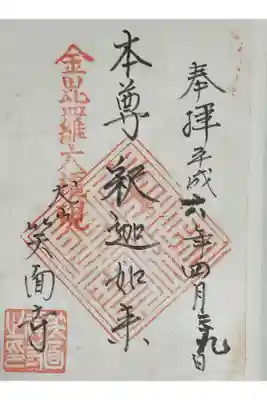 奉拝 平成六年四月二九日
本尊 釈迦如来
金毘羅大権現
笑面寺